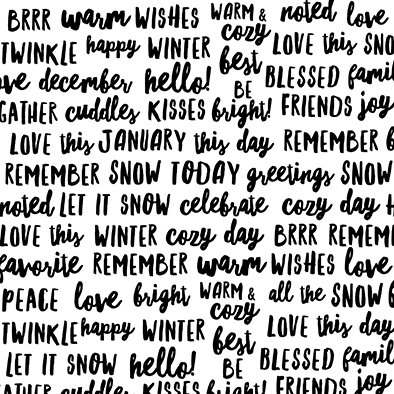 BRRR warm WISHES WARM & cozy noted love
TWINKLE happy WINTER best LOVE this SNO
ove december hello! BE BLESSED famil
GATHER cuddles KISSES bright! FRIENDS joy
LOVE this JANUARY this day REMEMBER
REMEMBER SNOW TODAY greetings SNOW
noted LET IT SNOW celebrate cozy day H
LOVE this WINTER cozy day BRRR REMEM
favorite REMEMBER warm WISHES love
PEACE love bright WARM & cozy all the SNOW
TWINKLE happy WINTER best LOVE this day
LET IT SNOW hello! BE BLESSED famil
GATHER cuddles KISSES bright! FRIENDS joy